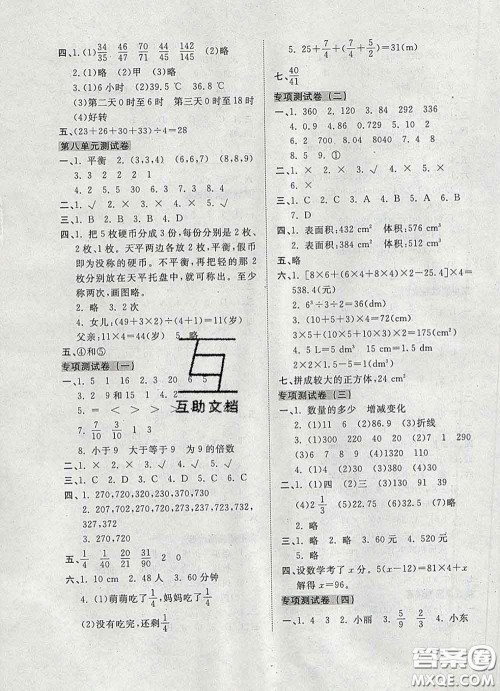 四、1. (1) 34/71 46/83 70/107 44/81 142/179 145/182
(2)略
2. (1)略 (2)甲 (3)略
3. (1)6小时 (2)39.5 ℃ 36.8 ℃
(3)第二天0时至6时 第三天0时至18时
(4)好转
五、(23+26+30+33)÷4=28
第八单元测试卷
一、1. 平衡 2. (3,3,4) (6,8,8) (8,8,9)
二、1. √ 2. × 3. × 4. √
三、1. B 2. B 3. B 4. D
四、1. 把5枚硬币分成3份,每份分别是2枚、
2枚、1枚。天平两边各放2枚,平衡,假币
即为没称的硬币。不平衡,再把轻的那2
枚分别放在天平托盘中,就可称出来。至
少称两次,画图略。
2. 略 3. 略
4. 女儿:(49+3×2)÷(4+1)=11(岁)
父亲:11×4=44(岁) 5. 略
五、④和⑤
专项测试卷 (一)
一、1. 5 1 15 1 16 3 20 6 5
2. 3 2 9和15 1 2 4
5. = < > < > >
7. 7/10 3/10 3 3
8. 小于9 大于等于9 为9的倍数
二、1. × 2. × 3. √
三、1. C 2. C 3. A 4. D
四、1. 270,720
2. 207,270,702,720,237,273,327,723,732,
372
3. 270,720,230,320,370,730
五、1/4 1/40 31/42 2/15 7/8 0
六、1. 10 cm 2. 48人 3. 60分钟
4. (1)萌萌吃了1/4,妈妈吃了1/2
(2)没有吃完,还剩1/4
5. 25+7/4+(7/4+5/2)=31(m)
七、40/41
专项测试卷 (二)
一、1. 360 2. 120 3. 84 292 240
4. 0.09 4.86 0.729 5. 8 10
8. 5 9. ①
二、1. × 2. × 3. √ 4. × 5. ×
三、1. C 2. A 3. C 4. D
四、1. 表面积:432 cm² 体积:576 cm³
2. 表面积:384 cm² 体积:512 cm³
五、略
六、1. [8×6+(6×4+8×4)×2-25.4]×4=
538.4(元)
2. 6³÷3÷2=36(dm)
3. (3×2+3×5+2×5)×2=62(dm²)
3×5×2+(10+6)×2=62(dm²)
4. 5 L=5 dm³ 5÷2=2.5(dm)
七、拼成较大的正方体,24 cm²
专项测试卷 (三)
一、1. 数量的多少 增减变化
2. (1)11 (2)6 86 (3)折线
3. (1)220 (2)7 270 (3)6 150
(4)1320
二、1. (1)四 (2)三 (3)130 91 39
(4)2 1/3 (5)2 (6)22.86 (7)略
2. 略
三、1. 略 2. 略 3. 60元 4. 520元
5. 略
四、设数学考了x分。5(x-12)=81×4+x
解得x=96。
专项测试卷 (四)
一、1. 4 3 2. 小丽 3. 5/9 2/3 4. 小东
互助文档
答案圈
MXQE.COM